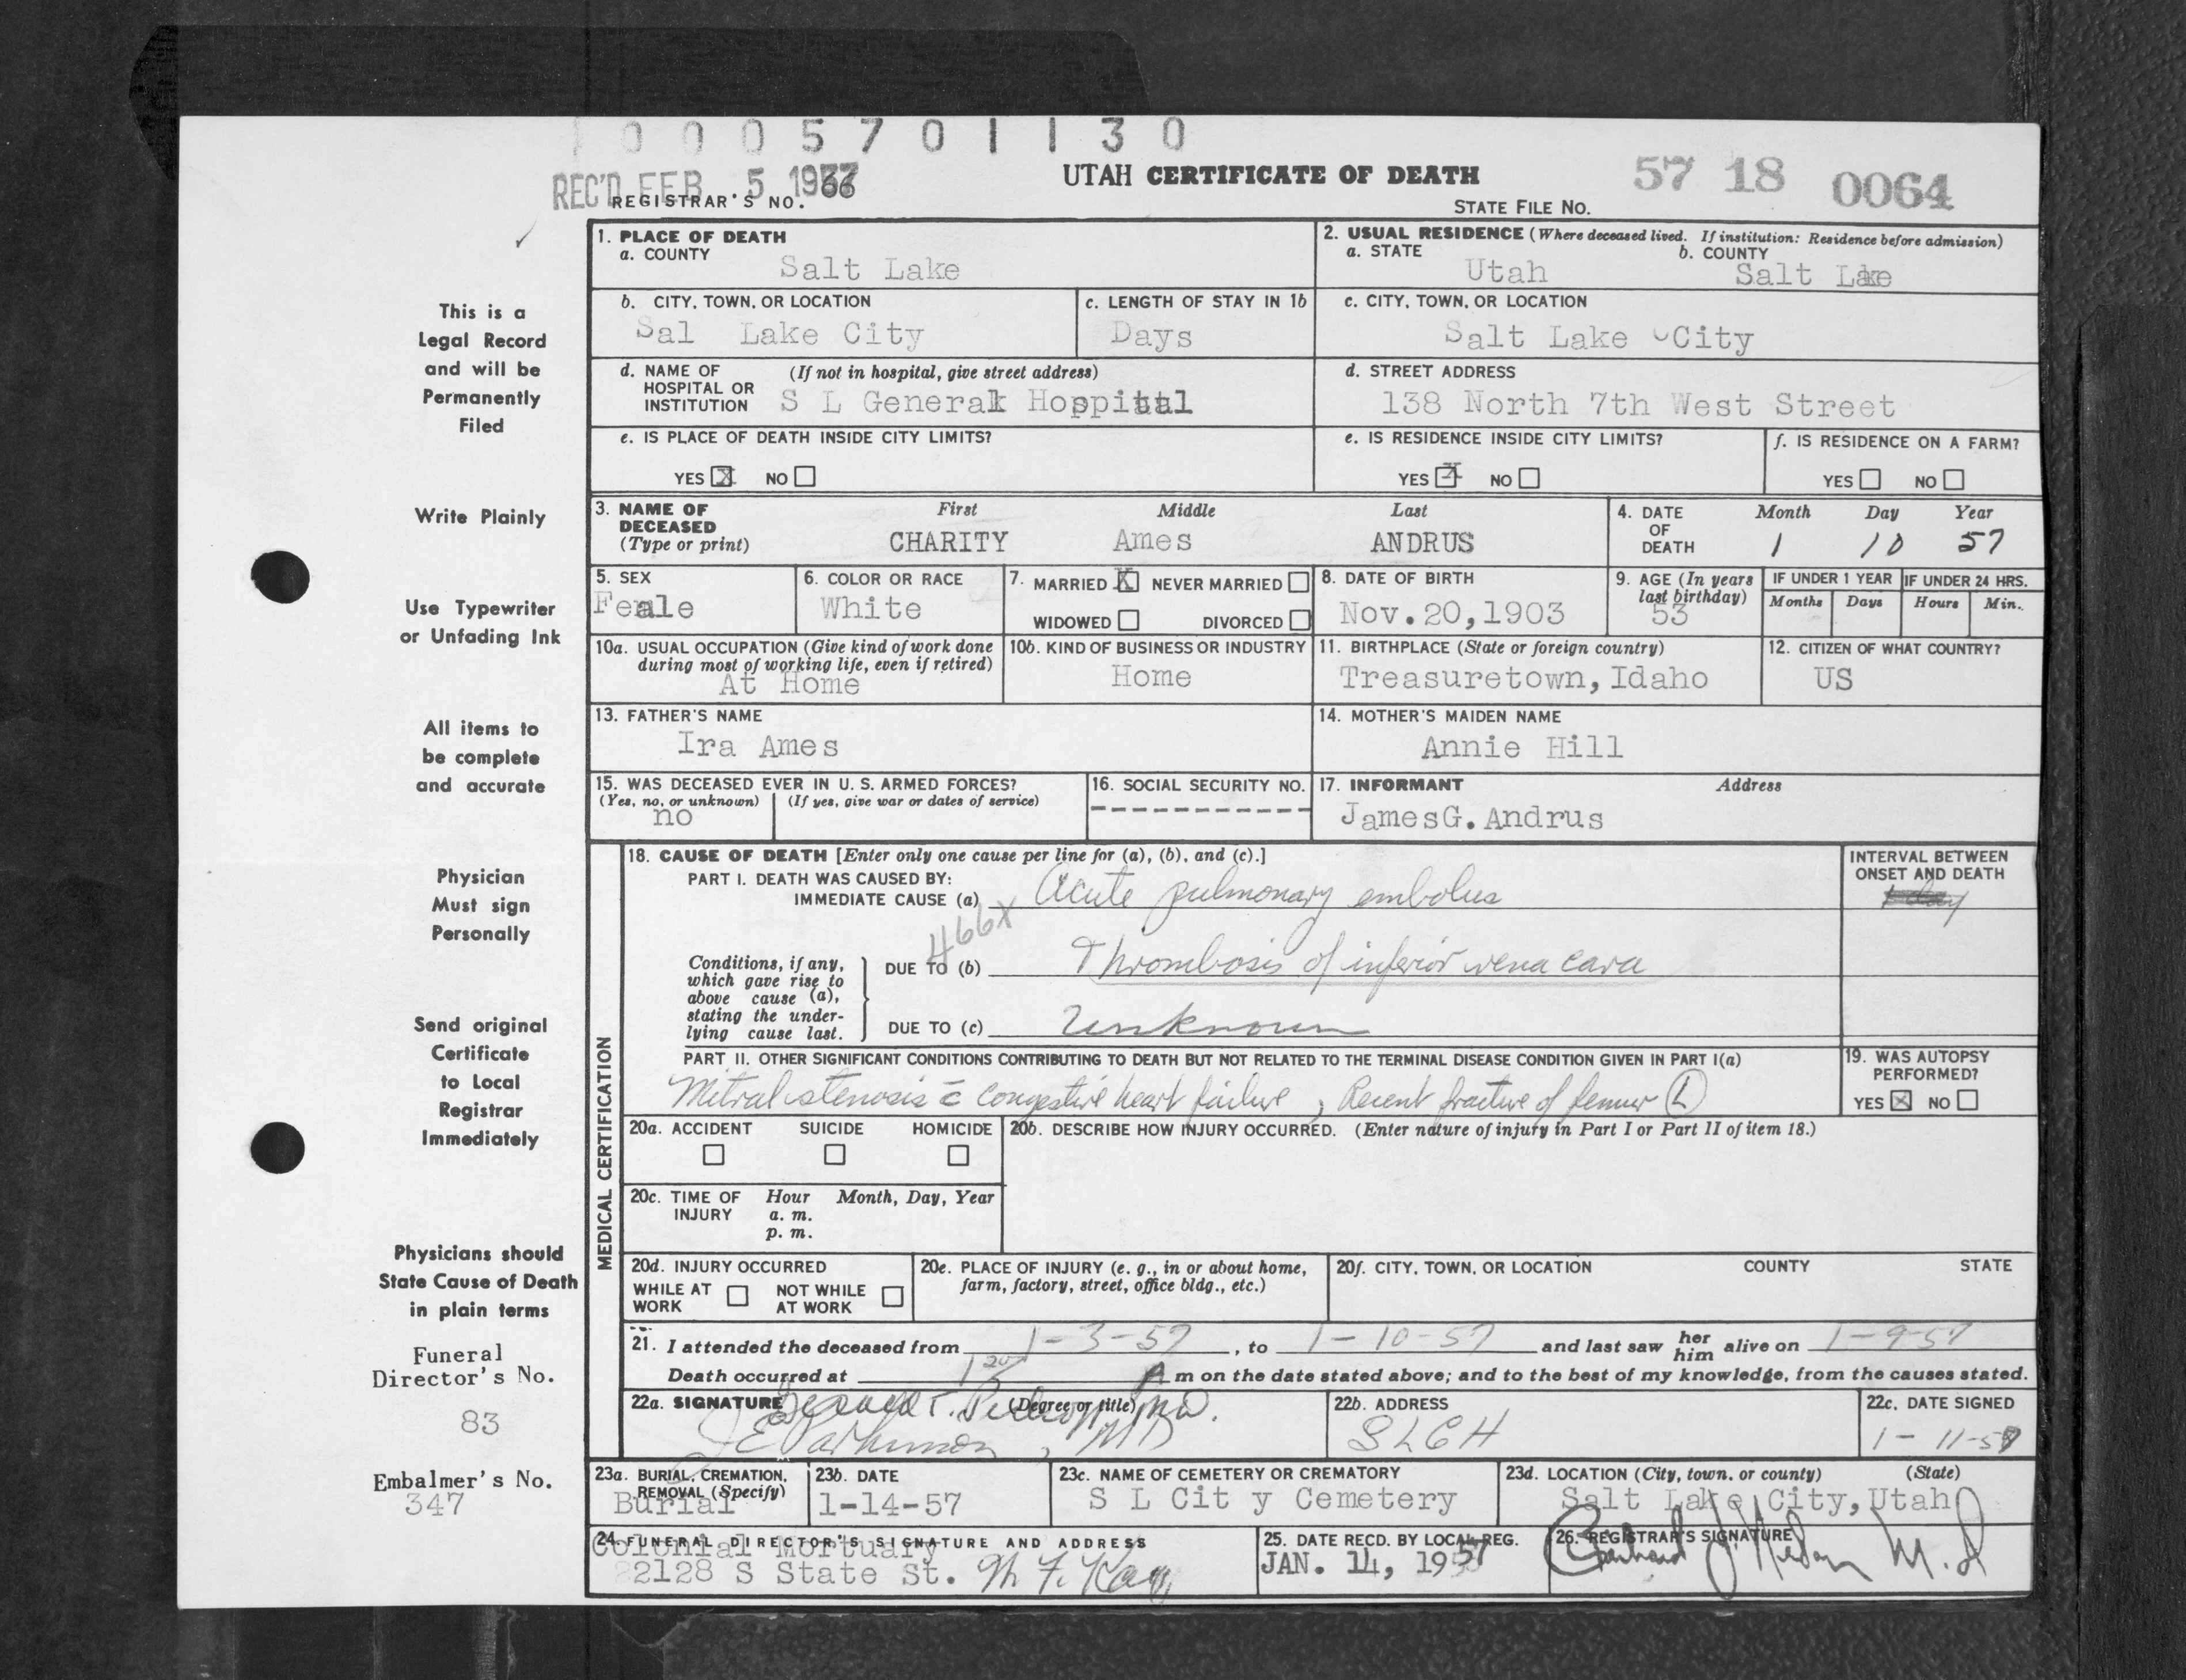 0 0 0 5 7 0 1 1 3 0
REC'D FEB 5 1957
REGISTRAR'S NO. 66
UTAH CERTIFICATE OF DEATH
57 18 0064
STATE FILE NO.
1. PLACE OF DEATH
a. COUNTY
Salt Lake
2. USUAL RESIDENCE (Where deceased lived. If institution: Residence before admission)
a. STATE
Utah
b. COUNTY
Salt Lake
b. CITY, TOWN, OR LOCATION
Sal Lake City
c. LENGTH OF STAY IN 1b
Days
c. CITY, TOWN, OR LOCATION
Salt Lake City
d. NAME OF HOSPITAL OR INSTITUTION (If not in hospital, give street address)
S L General Hospital
d. STREET ADDRESS
138 North 7th West Street
e. IS PLACE OF DEATH INSIDE CITY LIMITS?
YES X NO
e. IS RESIDENCE INSIDE CITY LIMITS?
YES X NO
f. IS RESIDENCE ON A FARM?
YES NO
3. NAME OF DECEASED (Type or print)
First Middle Last
CHARITY Ames ANDRUS
4. DATE OF DEATH
Month Day Year
1 10 57
5. SEX
Female
6. COLOR OR RACE
White
7. MARRIED X NEVER MARRIED
WIDOWED DIVORCED
8. DATE OF BIRTH
Nov.20,1903
9. AGE (In years last birthday)
53
IF UNDER 1 YEAR
Months Days
IF UNDER 24 HRS.
Hours Min.
10a. USUAL OCCUPATION (Give kind of work done during most of working life, even if retired)
At Home
10b. KIND OF BUSINESS OR INDUSTRY
Home
11. BIRTHPLACE (State or foreign country)
Treasuretown, Idaho
12. CITIZEN OF WHAT COUNTRY?
US
13. FATHER'S NAME
Ira Ames
14. MOTHER'S MAIDEN NAME
Annie Hill
15. WAS DECEASED EVER IN U. S. ARMED FORCES?
(Yes, no, or unknown) (If yes, give war or dates of service)
no
16. SOCIAL SECURITY NO.
------------
17. INFORMANT Address
JamesG. Andrus
MEDICAL CERTIFICATION
18. CAUSE OF DEATH [Enter only one cause per line for (a), (b), and (c).]
PART I. DEATH WAS CAUSED BY:
IMMEDIATE CAUSE (a) Acute pulmonary embolus
INTERVAL BETWEEN ONSET AND DEATH
466X
Conditions, if any, which gave rise to above cause (a), stating the underlying cause last.
DUE TO (b) Thrombosis of inferior vena cava
DUE TO (c) Unknown
PART II. OTHER SIGNIFICANT CONDITIONS CONTRIBUTING TO DEATH BUT NOT RELATED TO THE TERMINAL DISEASE CONDITION GIVEN IN PART I(a)
Mitral stenosis c̄ congestive heart failure, Recent fracture of femur (L)
19. WAS AUTOPSY PERFORMED?
YES X NO
20a. ACCIDENT SUICIDE HOMICIDE
20b. DESCRIBE HOW INJURY OCCURRED. (Enter nature of injury in Part I or Part II of item 18.)
20c. TIME OF INJURY
Hour Month, Day, Year
a. m.
p. m.
20d. INJURY OCCURRED
WHILE AT WORK
NOT WHILE AT WORK
20e. PLACE OF INJURY (e. g., in or about home, farm, factory, street, office bldg., etc.)
20f. CITY, TOWN, OR LOCATION COUNTY STATE
21. I attended the deceased from 1-3-57, to 1-10-57 and last saw her him alive on 1-9-57
Death occurred at 1 20 A m on the date stated above; and to the best of my knowledge, from the causes stated.
22a. SIGNATURE (Degree or title) MD.
J E Parkinson, MD
22b. ADDRESS
SLGH
22c. DATE SIGNED
1-11-57
23a. BURIAL, CREMATION, REMOVAL (Specify)
Burial
23b. DATE
1-14-57
23c. NAME OF CEMETERY OR CREMATORY
S L Cit y Cemetery
23d. LOCATION (City, town, or county) (State)
Salt Lake City, Utah
24. FUNERAL DIRECTOR'S SIGNATURE AND ADDRESS
Colonial Mortuary
2128 S State St.
25. DATE RECD. BY LOCAL REG.
JAN. 14, 1957
26. REGISTRAR'S SIGNATURE
M.D
This is a
Legal Record
and will be
Permanently
Filed
Write Plainly
Use Typewriter
or Unfading Ink
All items to
be complete
and accurate
Physician
Must sign
Personally
Send original
Certificate
to Local
Registrar
Immediately
Physicians should
State Cause of Death
in plain terms
Funeral
Director's No.
83
Embalmer's No.
347